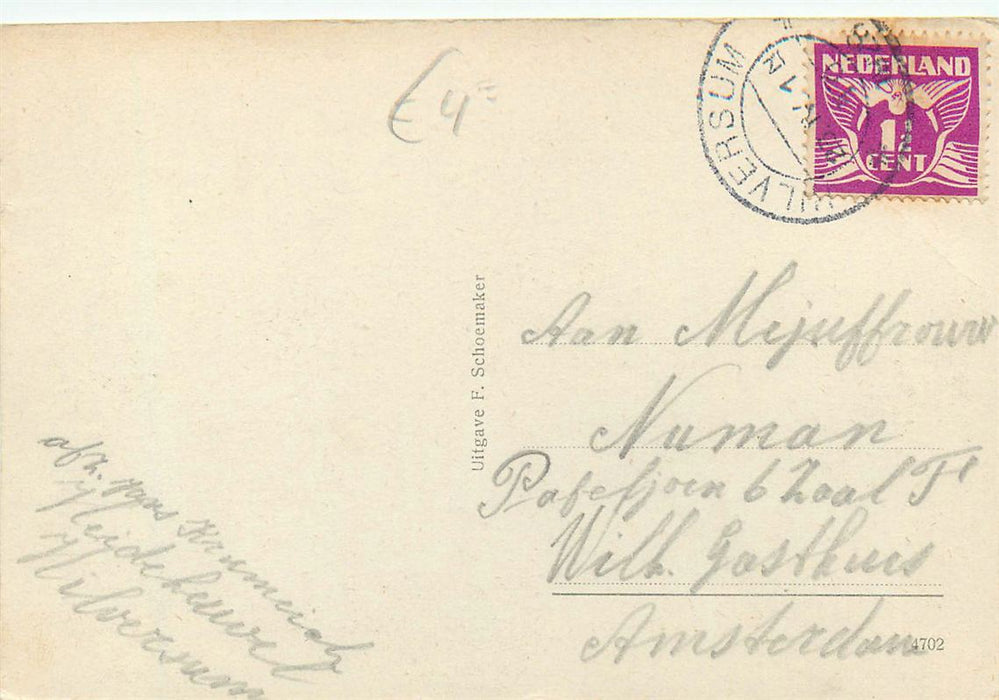 € 4=
HILVERSUM
NEDERLAND
1½
CENT
Uitgave F. Schoemaker
Aan Mejuffrouw
Numan
Pafefjoen 6 Zaal F
Wilh. Gasthuis
Amsterdam
4702
afz.
Heideheuvel
Hilversum